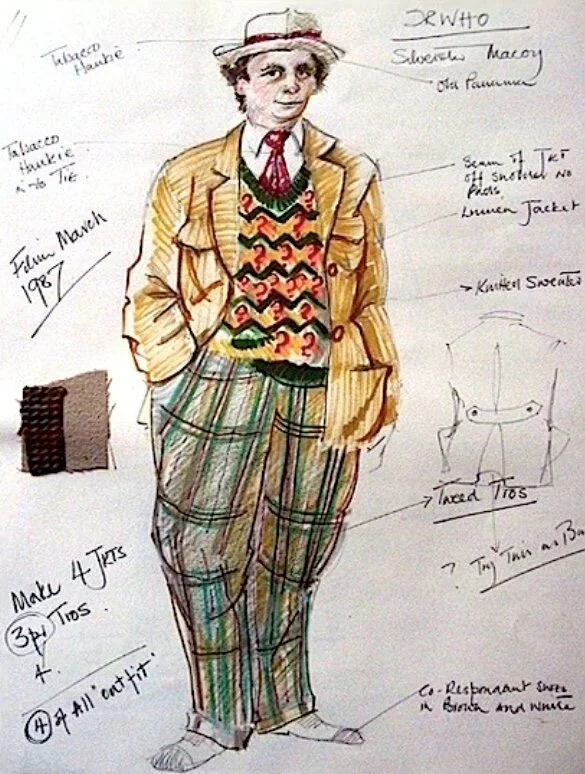 DR WHO
Sylvester Macoy
Tobacco
Hankie
Old Panama
Tobacco
Hankie
n to Tie
Seam of JKT
off shoulder No
Pads
Linnen Jacket
Film March
1987
Knitted Sweater
Tweed Tros
? Try This as Ba
Make 4 JKTS
3pr Tros.
4 of All "outfit"
Co-Respondant Shoes
in Brown and White